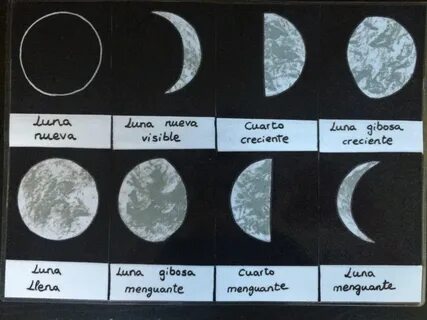 Luna
nueva
Luna nueva
visible
Cuarto
creciente
Luna gibosa
creciente
Luna
Llena
Luna gibosa
menguante
Cuarto
menguante
Luna
menguante